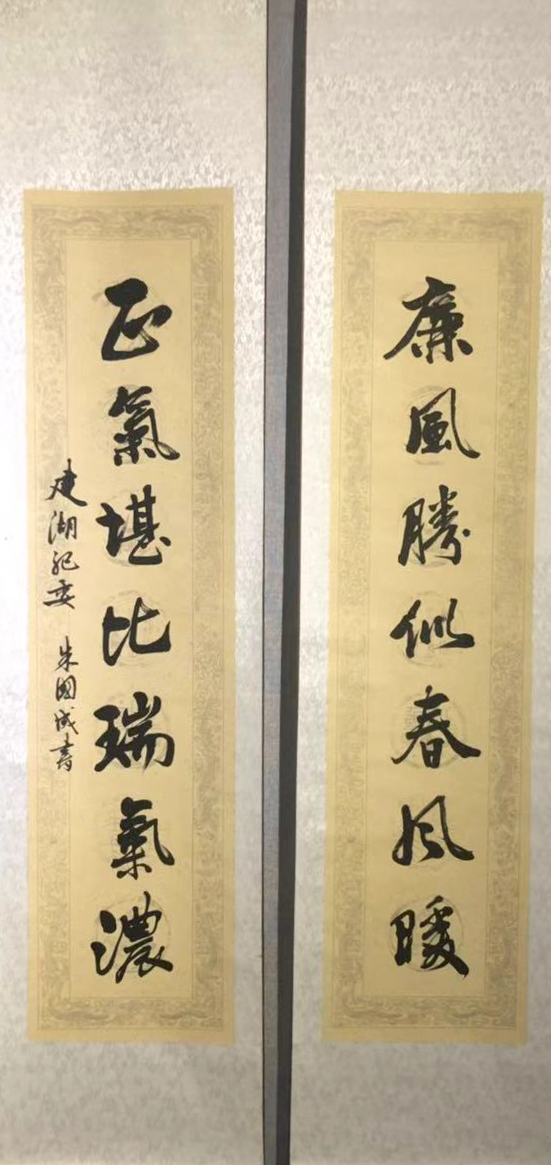 廉風勝似春风暖
正氣堪比瑞氣濃
建湖纪委 朱國成書